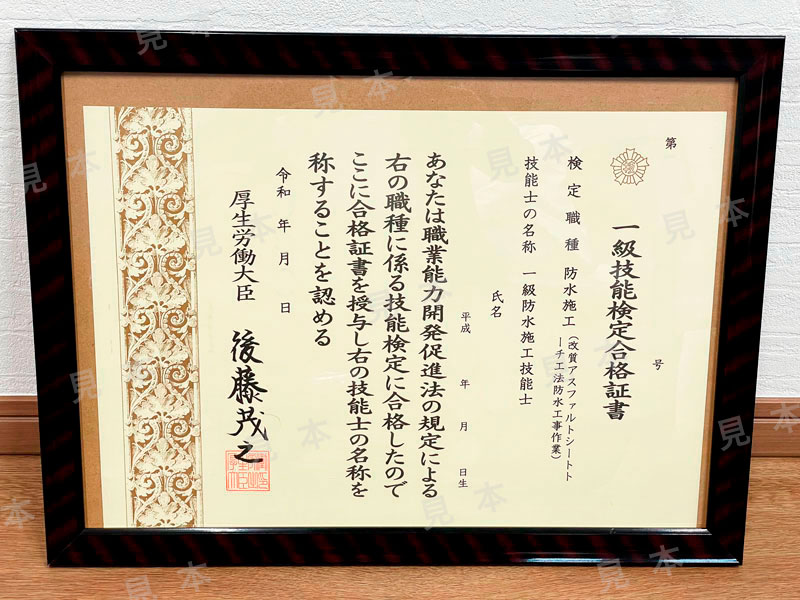 第 号
一級技能検定合格証書
検定職種 防水施工(改質アスファルトシートト
ーチ工法防水工事作業)
技能士の名称 一級防水施工技能士
氏名
平成 年 月 日生
あなたは職業能力開発促進法の規定による
右の職種に係る技能検定に合格したので
ここに合格証書を授与し右の技能士の名称を
称することを認める
令和 年 月 日
厚生労働大臣 後藤茂之
見本
見本
見本
見本
見本
見本
見本
見本
見本
見本
見本
見本
見本
見本